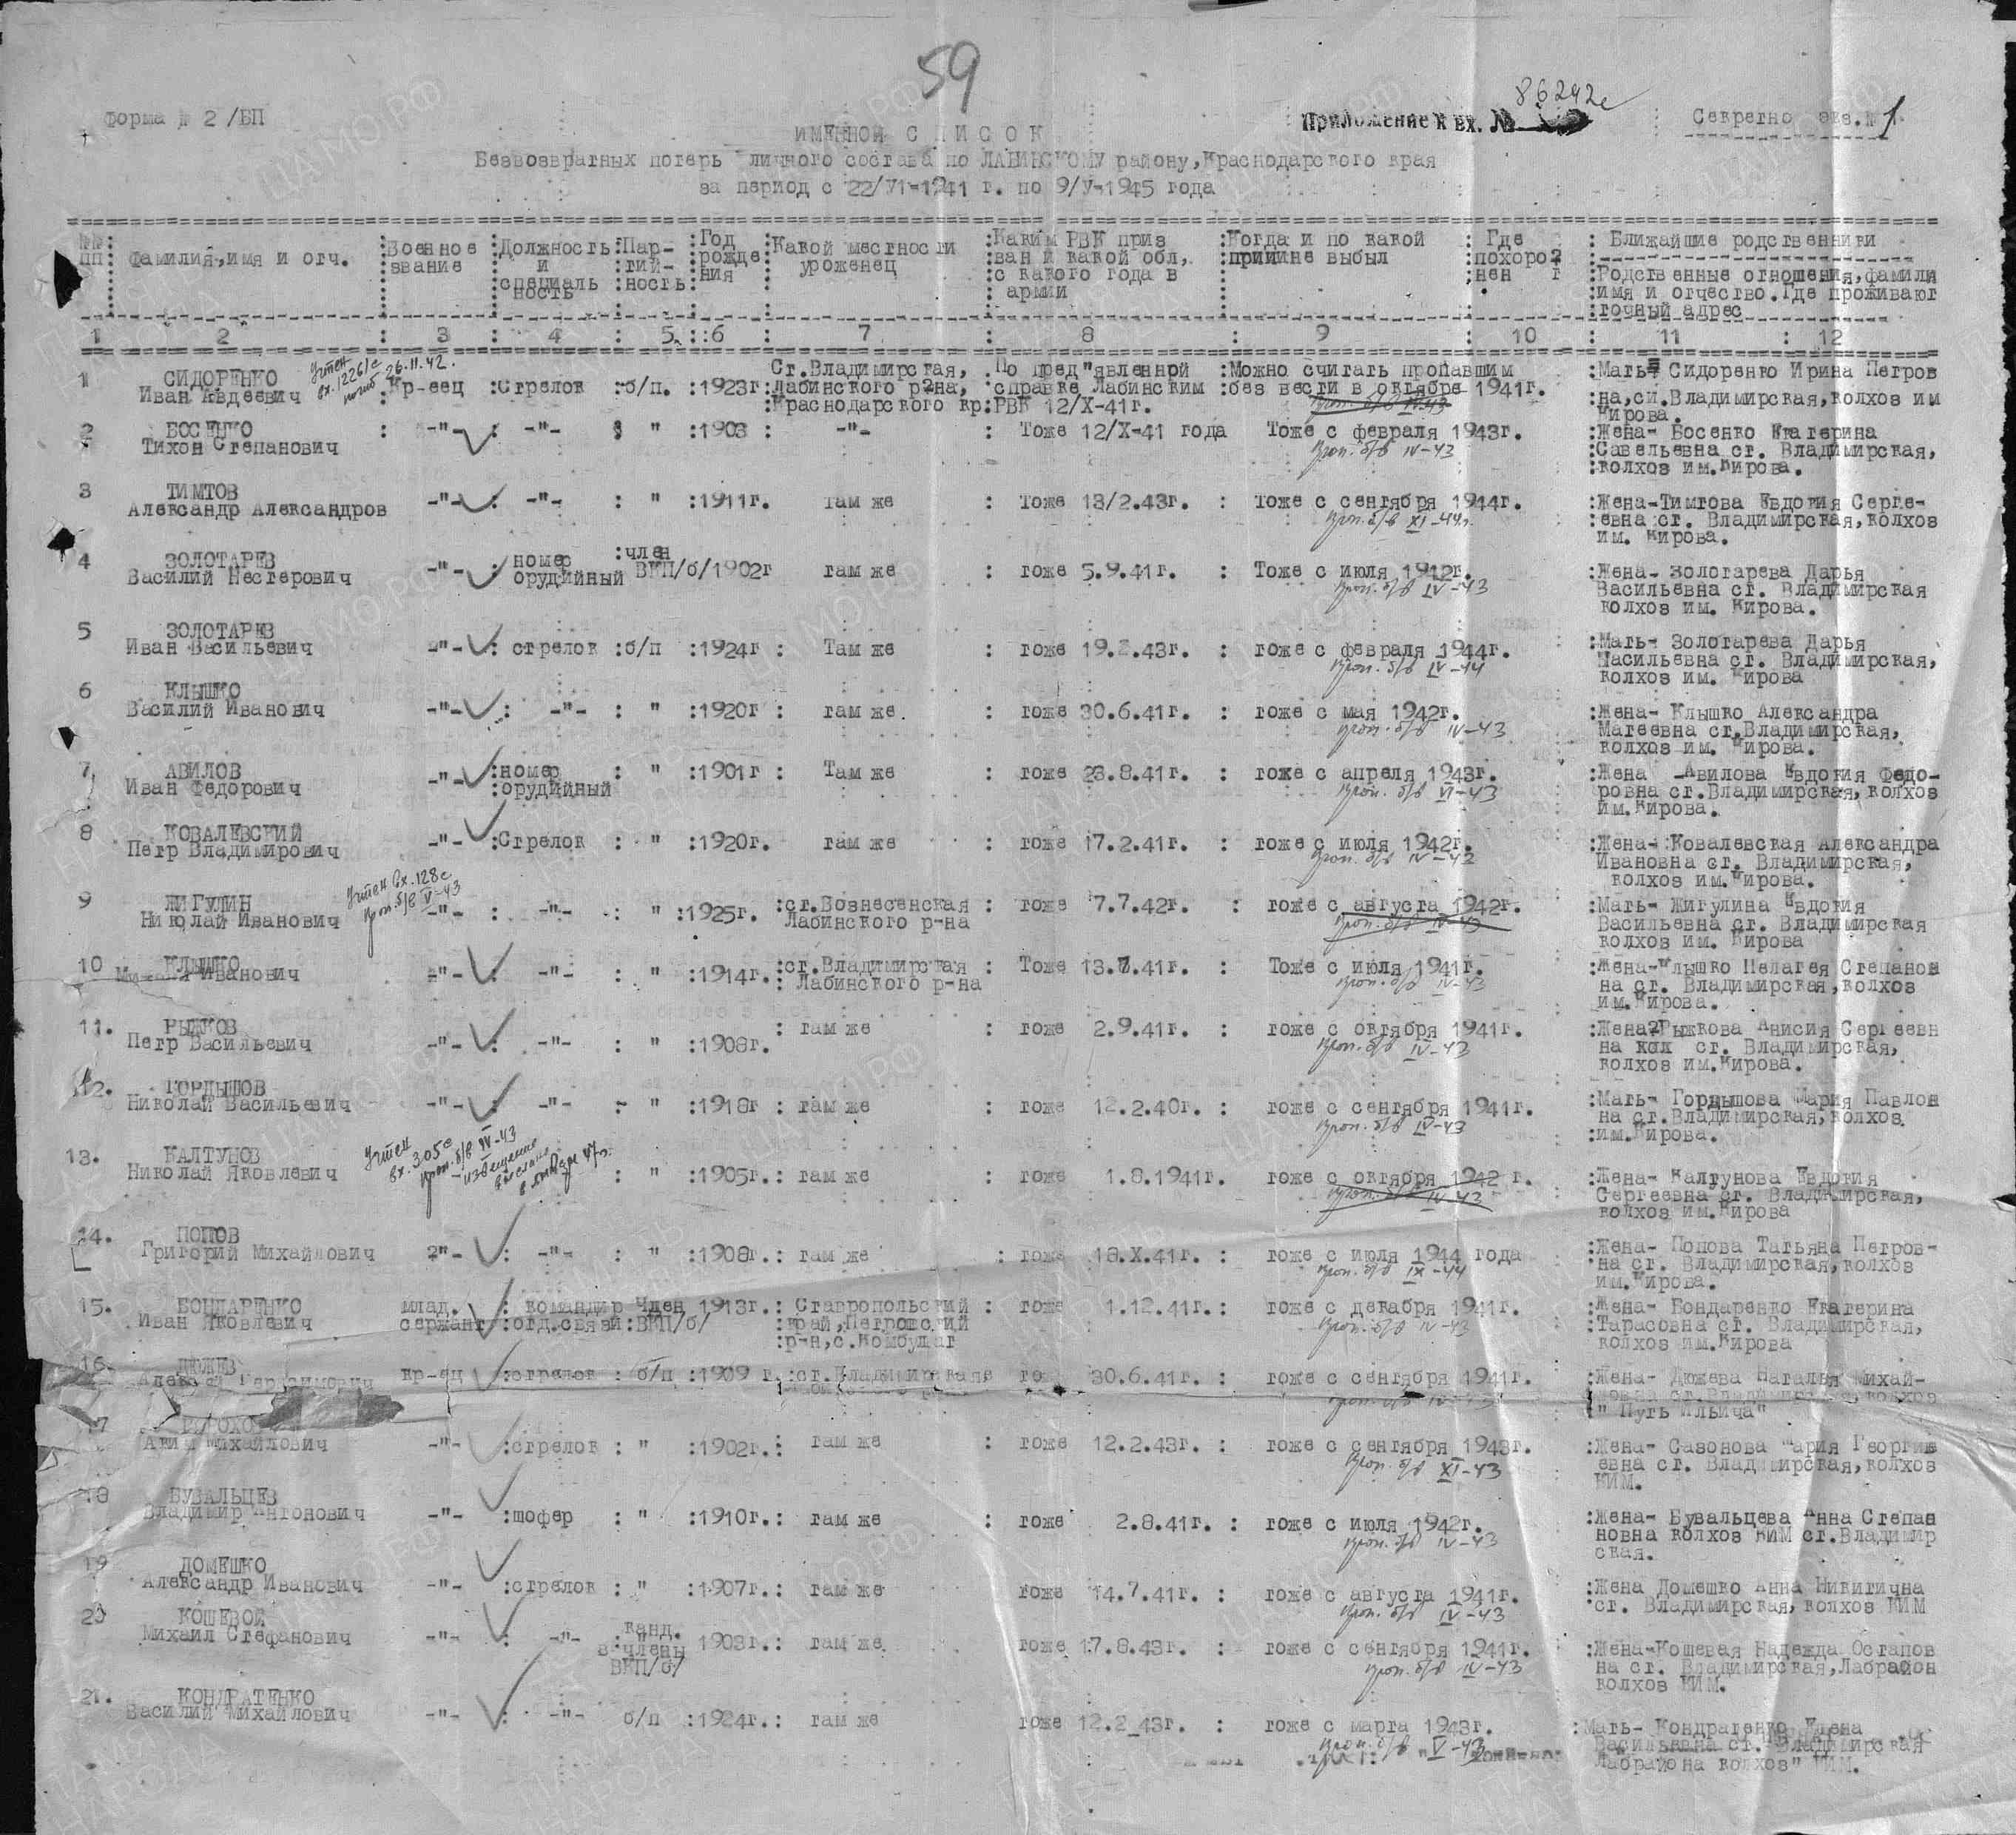 59
86242с
Форма № 2 /БП
Приложение к вх. №
Секретно экз.№ 1
ИМЕННОЙ С П И С О К
Безвозвратных потерь личного состава по ЛАБИНСКОМУ району, Краснодарского края
за период с 22/VI-1941 г. по 9/V-1945 года
№№ пп : Фамилия,имя и отч. : Военное звание : Должность и специаль ность : Пар- тий- ность : Год рожде ния : Какой местности уроженец : Каким РВК приз ван и какой обл, с какого года в армии : Когда и по какой причине выбыл : Где похоро нен : Ближайшие родственники
Родственные отношения, фамилия имя и отчество. Где проживают точный адрес
1 2 : 3 : 4 : 5. : 6 : 7 : 8 : 9 : 10 : 11 : 12
Учтен вх.1226/с погиб 26.11.42.
1 СИДОРЕНКО Ст.Владимирская, По пред"явленной :Можно считать пропавшим :Мать- Сидоренко Ирина Петров
Иван Авдеевич Кр-еец :Стрелок б/п. :1923г Лабинского р-на, справке Лабинским :без вести в октябре 1941г. :на,
Краснодарского кр:РВК 12/X-41г. Владимирская,колхоз им
Кирова.
2 БОСЕНКО : -"- : -"- : " :1903 : -"- : Тоже 12/X-41 года Тоже с февраля 1943г. :Жена- Босенко Екатерина
Тихон Степанович проп. б/в IV-43 :Савельевна ст. Владимирская,
:колхоз им.Кирова.
3 ТИМТОВ -"- : -"- : " :1911г. там же : Тоже 13/2.43г. : Тоже с сентября 1944г. :Жена-Тимтова Евдокия Серге-
Александр Александров проп. б/в XI-44г. :евна ст. Владимирская,колхоз
им. Кирова.
4 ЗОЛОТАРЕВ -"- : номер :член
Василий Нестерович орудийный ВКП/б/1902г там же : тоже 5.9.41г. : Тоже с июля 1942г. :Жена- Золотарева Дарья
проп. б/в IV-43 Васильевна ст. Владимирская
колхоз им. Кирова.
5 ЗОЛОТАРЕВ
Иван Васильевич -"- : стрелок :б/п :1924г : Там же : тоже 19.2.43г. : тоже с февраля 1944г. :Мать- Золотарева Дарья
проп. б/в IV-44 Васильевна ст. Владимирская,
колхоз им. Кирова
6 КЛЫШКО
Василий Иванович -"- : -"- : " :1920г : там же. : тоже 30.6.41г. : тоже с мая 1942г. :Жена- Клышко Александра
проп. б/в IV-43 Матеевна ст.Владимирская,
колхоз им. Кирова.
7 АВИЛОВ -"- :номер : " :1901г : Там же : тоже 23.8.41г. : тоже с апреля 1943г. :Жена -Авилова Евдокия Федо-
Иван Федорович :орудийный проп. б/в VI-43 ровна ст.Владимирская,колхоз
им.Кирова.
8 КОВАЛЕВСКИЙ
Петр Владимирович -"- :Стрелок : " :1920г. там же : тоже 17.2.41г. : тоже с июля 1942г. :Жена- Ковалевская Александра
проп. б/в IV-42 Ивановна ст. Владимирская,
колхоз им.Кирова.
Учтен вх.128с проп. б/в V-43
9 ЖИГУЛИН -"- : -"- : " :1925г. :ст.Вознесенская : тоже 7.7.42г. : тоже с августа 1942г. :Мать- Жигулина Евдокия
Николай Иванович Лабинского р-на проп. б/в IV-43 Васильевна ст. Владимирская
колхоз им. Кирова
10 КЛЫШКО -"- : -"- : " :1914г. :ст.Владимирская : Тоже 13.7.41г. : Тоже с июля 1941г. :Жена-Клышко Пелагея Степанов
Иванович Лабинского р-на проп. б/в IV-43 на ст. Владимирская,колхоз
им.Кирова.
11. РЫЖКОВ : там же : тоже 2.9.41г. : тоже с октября 1941г. :Жена Рыжкова Анисия Сергеевн
Петр Васильевич -"- : -"- : " :1908г. проп. б/в IV-43 на ст. Владимирская,
колхоз им.Кирова.
12. ГОРДЫШОВ
Николай Васильевич -"- : -"- - " :1918г : там же : тоже 12.2.40г. : тоже с сентября 1941г. :Мать- Гордышова Мария Павлов
проп. б/в IV-43 на ст.Владимирская,колхоз.
:им.Кирова.
Учтен вх.305с проп. б/в IV-43 -извещение выслано в январе 47г.
13. КАЛТУНОВ
Николай Яковлевич : " :1905г.: там же : тоже 1.8.1941г. тоже с октября 1942 г. :Жена- Калтунова Евдокия
проп. б/в IV-43 Сергеевна ст. Владимирская,
колхоз им.Кирова
14. ПОПОВ
Григорий Михайлович -"- : -"- : " :1908г.: там же : тоже 18.X.41г. : тоже с июля 1944 года :Жена- Попова Татьяна Петров-
проп. б/в IX-44 на ст. Владимирская,колхоз
им.Кирова.
15. БОНДАРЕНКО млад. : командир Член 1913г.: Ставропольский : тоже 1.12.41г.: тоже с декабря 1941г. :Жена- Бондаренко Екатерина
Иван Яковлевич сержант :отд.связи :ВКП/б/ край, проп. б/в IV-43 :Тарасовна ст. Владимирская,
:р-н,с. колхоз им.Кирова
16. ДЮЖЕВ кр-ец :стрелок : б/п :1909 г.:ст.Владимирская 30.6.41г. : тоже с сентября 1941г. :Жена- Дюжева Наталья Михай-
" Путь Ильича"
17
Аким Михайлович -"- :стрелок : " :1902г.: там же : тоже 12.2.43г. : тоже с сентября 1943г. :Жена- Сазонова Мария Георгие
проп. б/в XI-43 евна ст. Владимирская,колхоз
КИМ.
18 БУВАЛЬЦЕВ
Владимир Антонович -"- :шофер : " :1910г.: там же : тоже 2.8.41г. : тоже с июля 1942г. :Жена- Бувальцева Анна Степан
проп. б/в IV-43 новна колхоз КИМ ст.Владимир
ская.
19 ДОМЕШКО
Александр Иванович -"- :стрелок : " :1907г.: там же тоже 14.7.41г. : тоже с августа 1941г. :Жена Домешко Анна Никитична
проп. б/в IV-43 ст. Владимирская,колхоз КИМ
20 КОШЕВОЙ канд.
Михаил Стефанович -"- : -"- в члены 1903г.: там же тоже 17.8.43г. : тоже с сентября 1941г. :Жена-Кошевая Надежда Остапов
ВКП/б/ проп. б/в IV-43 на ст. Владимирская,Лабрайон
колхоз КИМ.
21. КОНДРАТЕНКО
Василий Михайлович -"- : -"- б/п :1924г.: там же тоже 12.2_43г. : тоже с марта 1943г. :Мать- Кондратенко Елена
проп. б/в V-43 Васильевна ст. Владимирская
Лабрайона колхоз" КИМ.